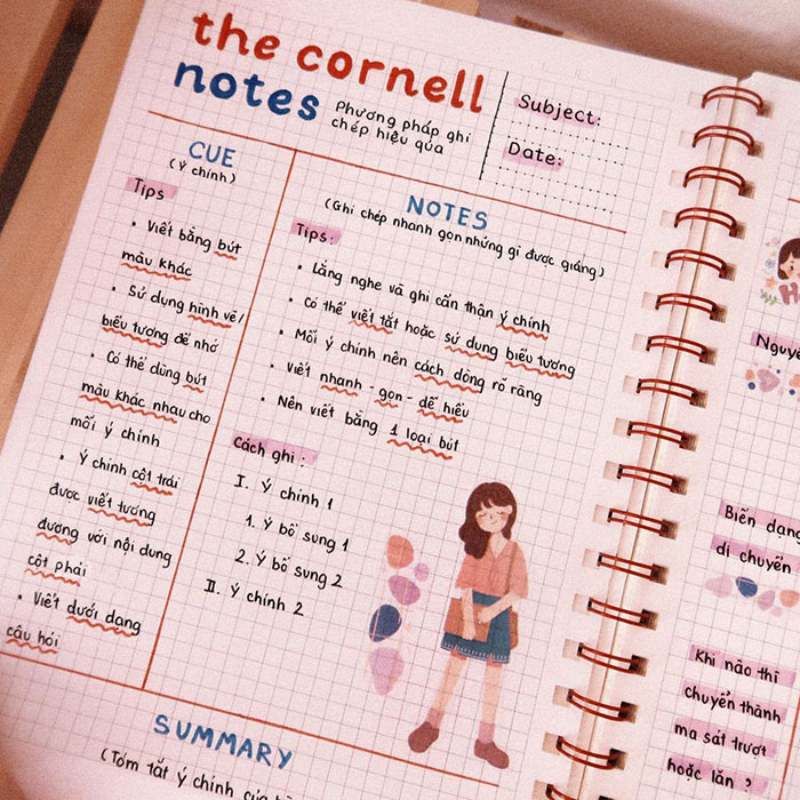 the cornell
notes
Phương pháp ghi
chép hiệu qủa
Subject:
Date:
CUE
(Ý chính)
Tips
• Viết bằng bút
màu khác
• Sử dụng hình vẽ/
biểu tượng để nhớ
• Có thể dùng bút
màu khác nhau cho
mỗi ý chính
• Ý chính cột trái
được viết tương
đương với nội dung
cột phải
• Viết dưới dạng
câu hỏi
NOTES
(Ghi chép nhanh gọn những gì được giảng)
Tips:
• Lắng nghe và ghi cẩn thận ý chính
• Có thể viết tắt hoặc sử dụng biểu tượng
• Mỗi ý chính nên cách dòng rõ ràng
• Viết nhanh - gọn - dễ hiểu
• Nên viết bằng 1 loại bút
Cách ghi:
I. Ý chính 1
1. Ý bổ sung 1
2. Ý bổ sung 2
II. Ý chính 2
SUMMARY
(Tóm tắt ý chính của
H
Nguyê
Biến dạng
di chuyển
Khi nào thì
chuyển thành
ma sát trượt
hoặc lăn ?